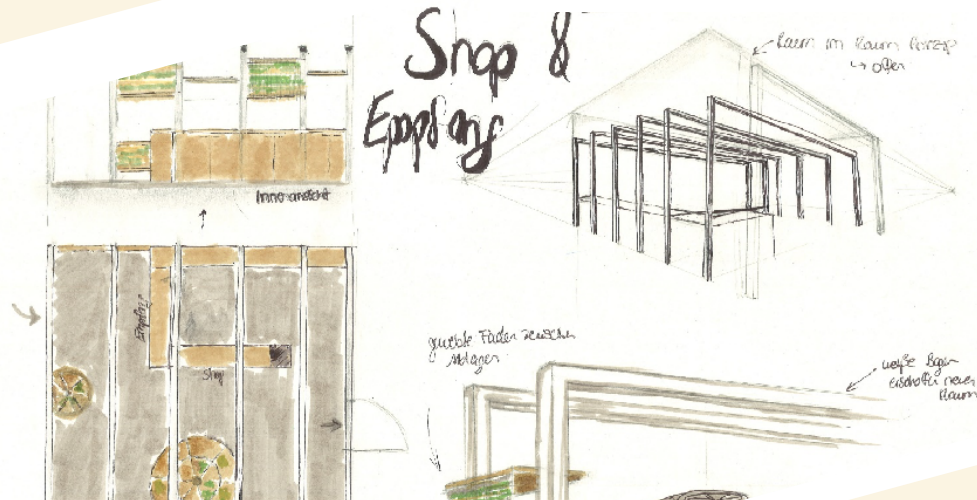 Shop &
Empfang
Raum im Raum Konzept
↳ offen
Innenansicht
Empfang
Shop
gewebte Fäden zwischen
weiße Bögen
erschaffen neuen
Raum